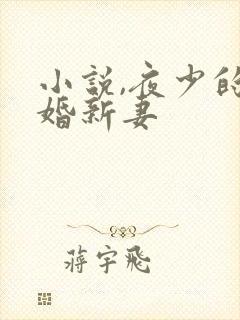 小说,夜少的
婚新妻
蒋宇飞